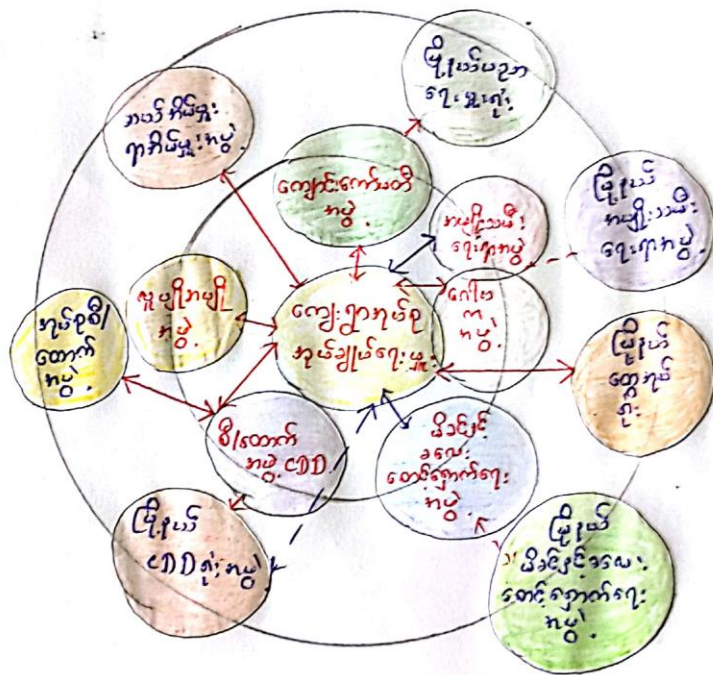 မြို့နယ်ပညာ
ရေးမှူးရုံး
ဆယ်အိမ်မှူး
ရာအိမ်မှူးအဖွဲ့
ကျောင်းကော်မတီ
အဖွဲ့
အမျိုးသမီး
ရေးရာအဖွဲ့
မြို့နယ်
အမျိုးသမီး
ရေးရာအဖွဲ့
လူပျိုအပျို
အဖွဲ့
ကျေးရွာအုပ်စု
အုပ်ချုပ်ရေးမှူး
ဂေါပ
က
အဖွဲ့
အုပ်စုစီ/
ထောက်
အဖွဲ့
မြို့နယ်
ထွေအုပ်
ရုံး
စီ/ထောက်
အဖွဲ့ CDD
မိခင်နှင့်
ကလေး
စောင့်ရှောက်ရေး
အဖွဲ့
မြို့နယ်
CDD ရုံးအဖွဲ့
မြို့နယ်
မိခင်နှင့်ကလေး
စောင့်ရှောက်ရေး
အဖွဲ့